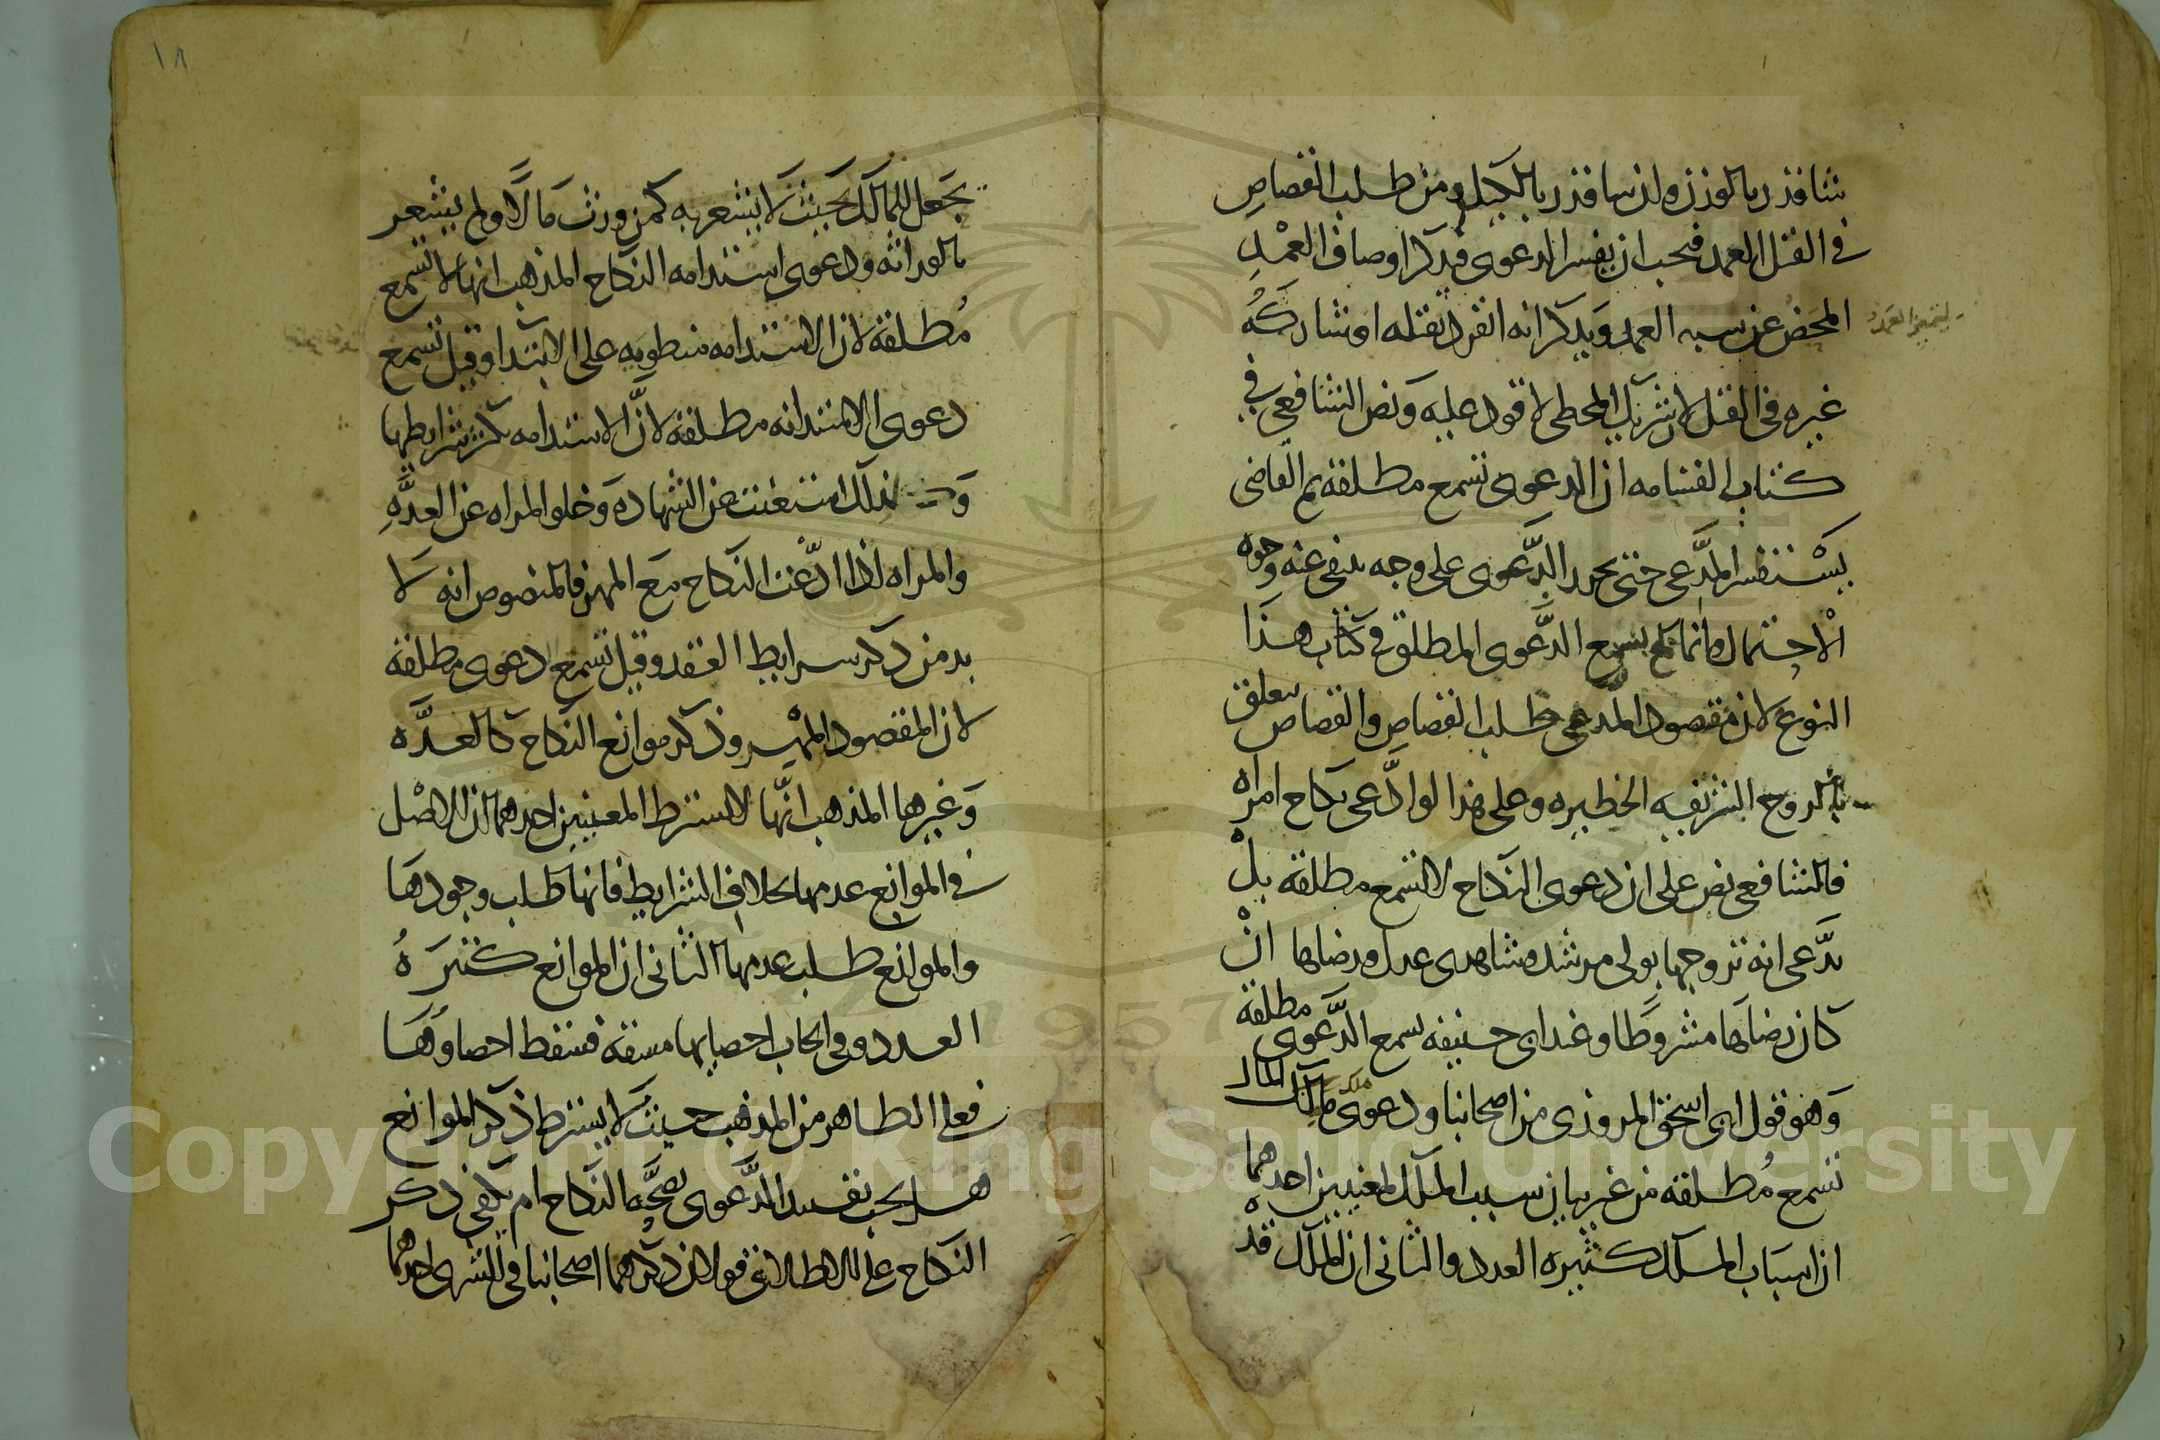 شا قدر بالوزن وان سا قدر بالكيل ومن طلب القصاص
في القتل العمد فيجب ان يفسر الدعوى فيذكر اوصاف العمد
المحض عن سبه العمد ويذكر انه انفرد بقتله او شاركه
غيره في القتل لان شريك المخطى لا قود عليه ونص الشافعي في
كتاب القسامه ان الدعوى تسمع مطلقة ثم القاضى
يستفسر المدعى حتى يحرر الدعوى على وجه ينفى عنه وجوه
الاحتمال وانما لم يسمع الدعوى المطلق في كتاب هذا
النوع لان مقصود المدعى طلب القصاص والقصاص يتعلق
بالروح الشريفيه الخطيره وعلى هذا لو ادعى نكاح امراه
فالشافعى نص على ان دعوى النكاح لا تسمع مطلقة بل
يدعى انه تزوجها بولى مرشد وشاهدى عدل ورضاها ان
كان رضاها مشروطا وعند ابى حنيفه تسمع الدعوى مطلقة
وهو قول ابى اسحق المروزى من اصحابنا ودعوى ملك المال
تسمع مطلقة من غير بيان سبب الملك لمعنيين احدهما
ان اسباب الملك كثيره العدد والثانى ان الملك قد
١٨
يجعل للمالك بحيث لا يشعر به كمن ورث مالا ولم يشعر
بالوراثه ودعوى استدامه النكاح المذهب انها لا تسمع
مطلقة لان الاستدامه منطويه على الابتدا وقيل تسمع
دعوى الاستدامه مطلقة لان الاستدامه تكثر شرايطها
لذلك استغنت عن الشهاده وخلو المراه عن العده
والمراه اذا ادعت النكاح مع المهر فالمنصوص انه لا
بد من ذكر سرايط العقد وقيل تسمع دعوى مطلقة
لان المقصود المهر وذكر موانع النكاح كالعده
وغيرها المذهب انها لا تشترط لمعنيين احدهما ان الاصل
في الموانع عدمها بخلاف الشرايط فانها طلب وجودها
والموانع طلب عدمها الثانى ان الموانع كثيره
العدد وفي ايجاب احصايها مشقة فسقط احصاوها
فعلى الظاهر من المذهب حيث لا يشترط ذكر الموانع
هل يجب تقييد الدعوى بصحه النكاح ام يكفى ذكر
النكاح على الاطلاق قولان ذكرهما اصحابنا في الشرى احدهما